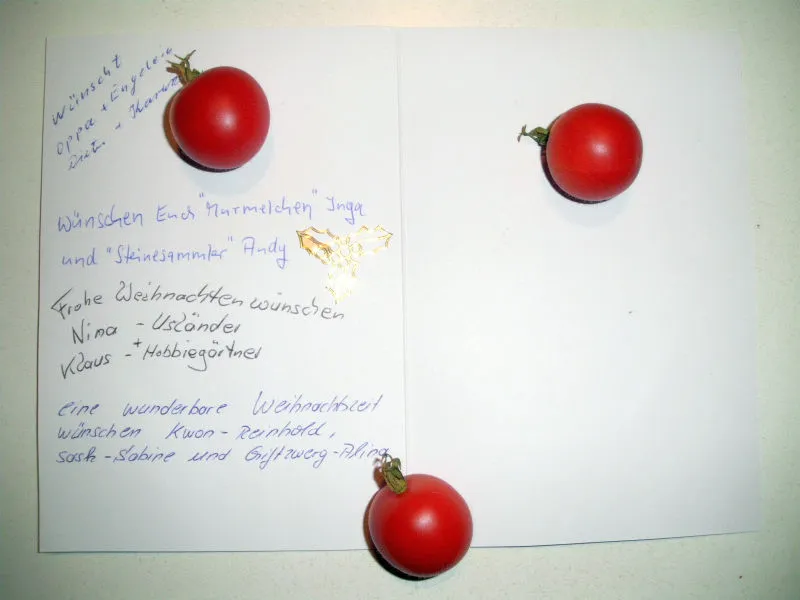 wünscht
Oppa + Engelein
+
wünschen Euch "Murmelchen" Inga
und "Steinesammler" Andy
Frohe Weihnachten wünschen
Nina - Usländer
Klaus - + Hobbiegärtner
eine wunderbare Weihnachtszeit
wünschen Kwon-Reinhold,
sash-Sabine und Giftzwerg-Alina